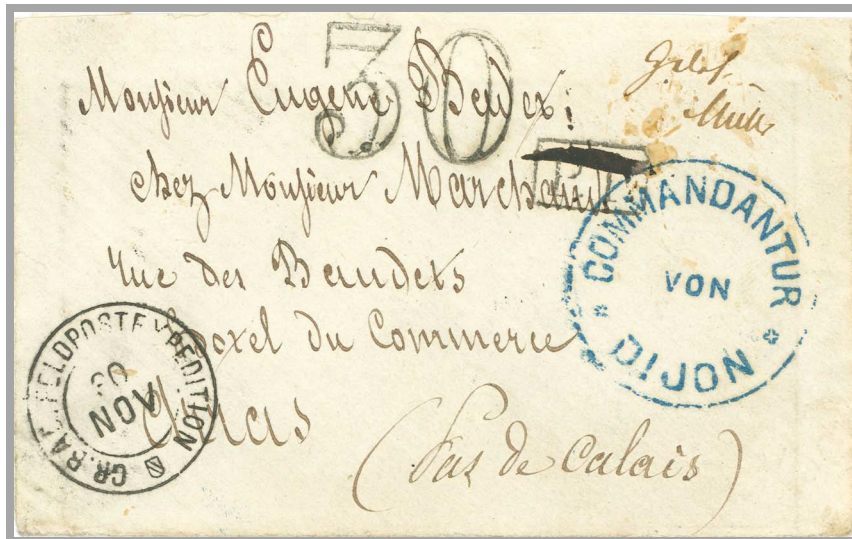 30
Monsieur Eugène
chez Monsieur Marchand
rue des Baudets
hoxel du Commerce
Arras
(Pas de Calais)
COMMANDANTUR
VON
DIJON
GR. BAD. FELDPOSTEXPEDITION
30
NOV